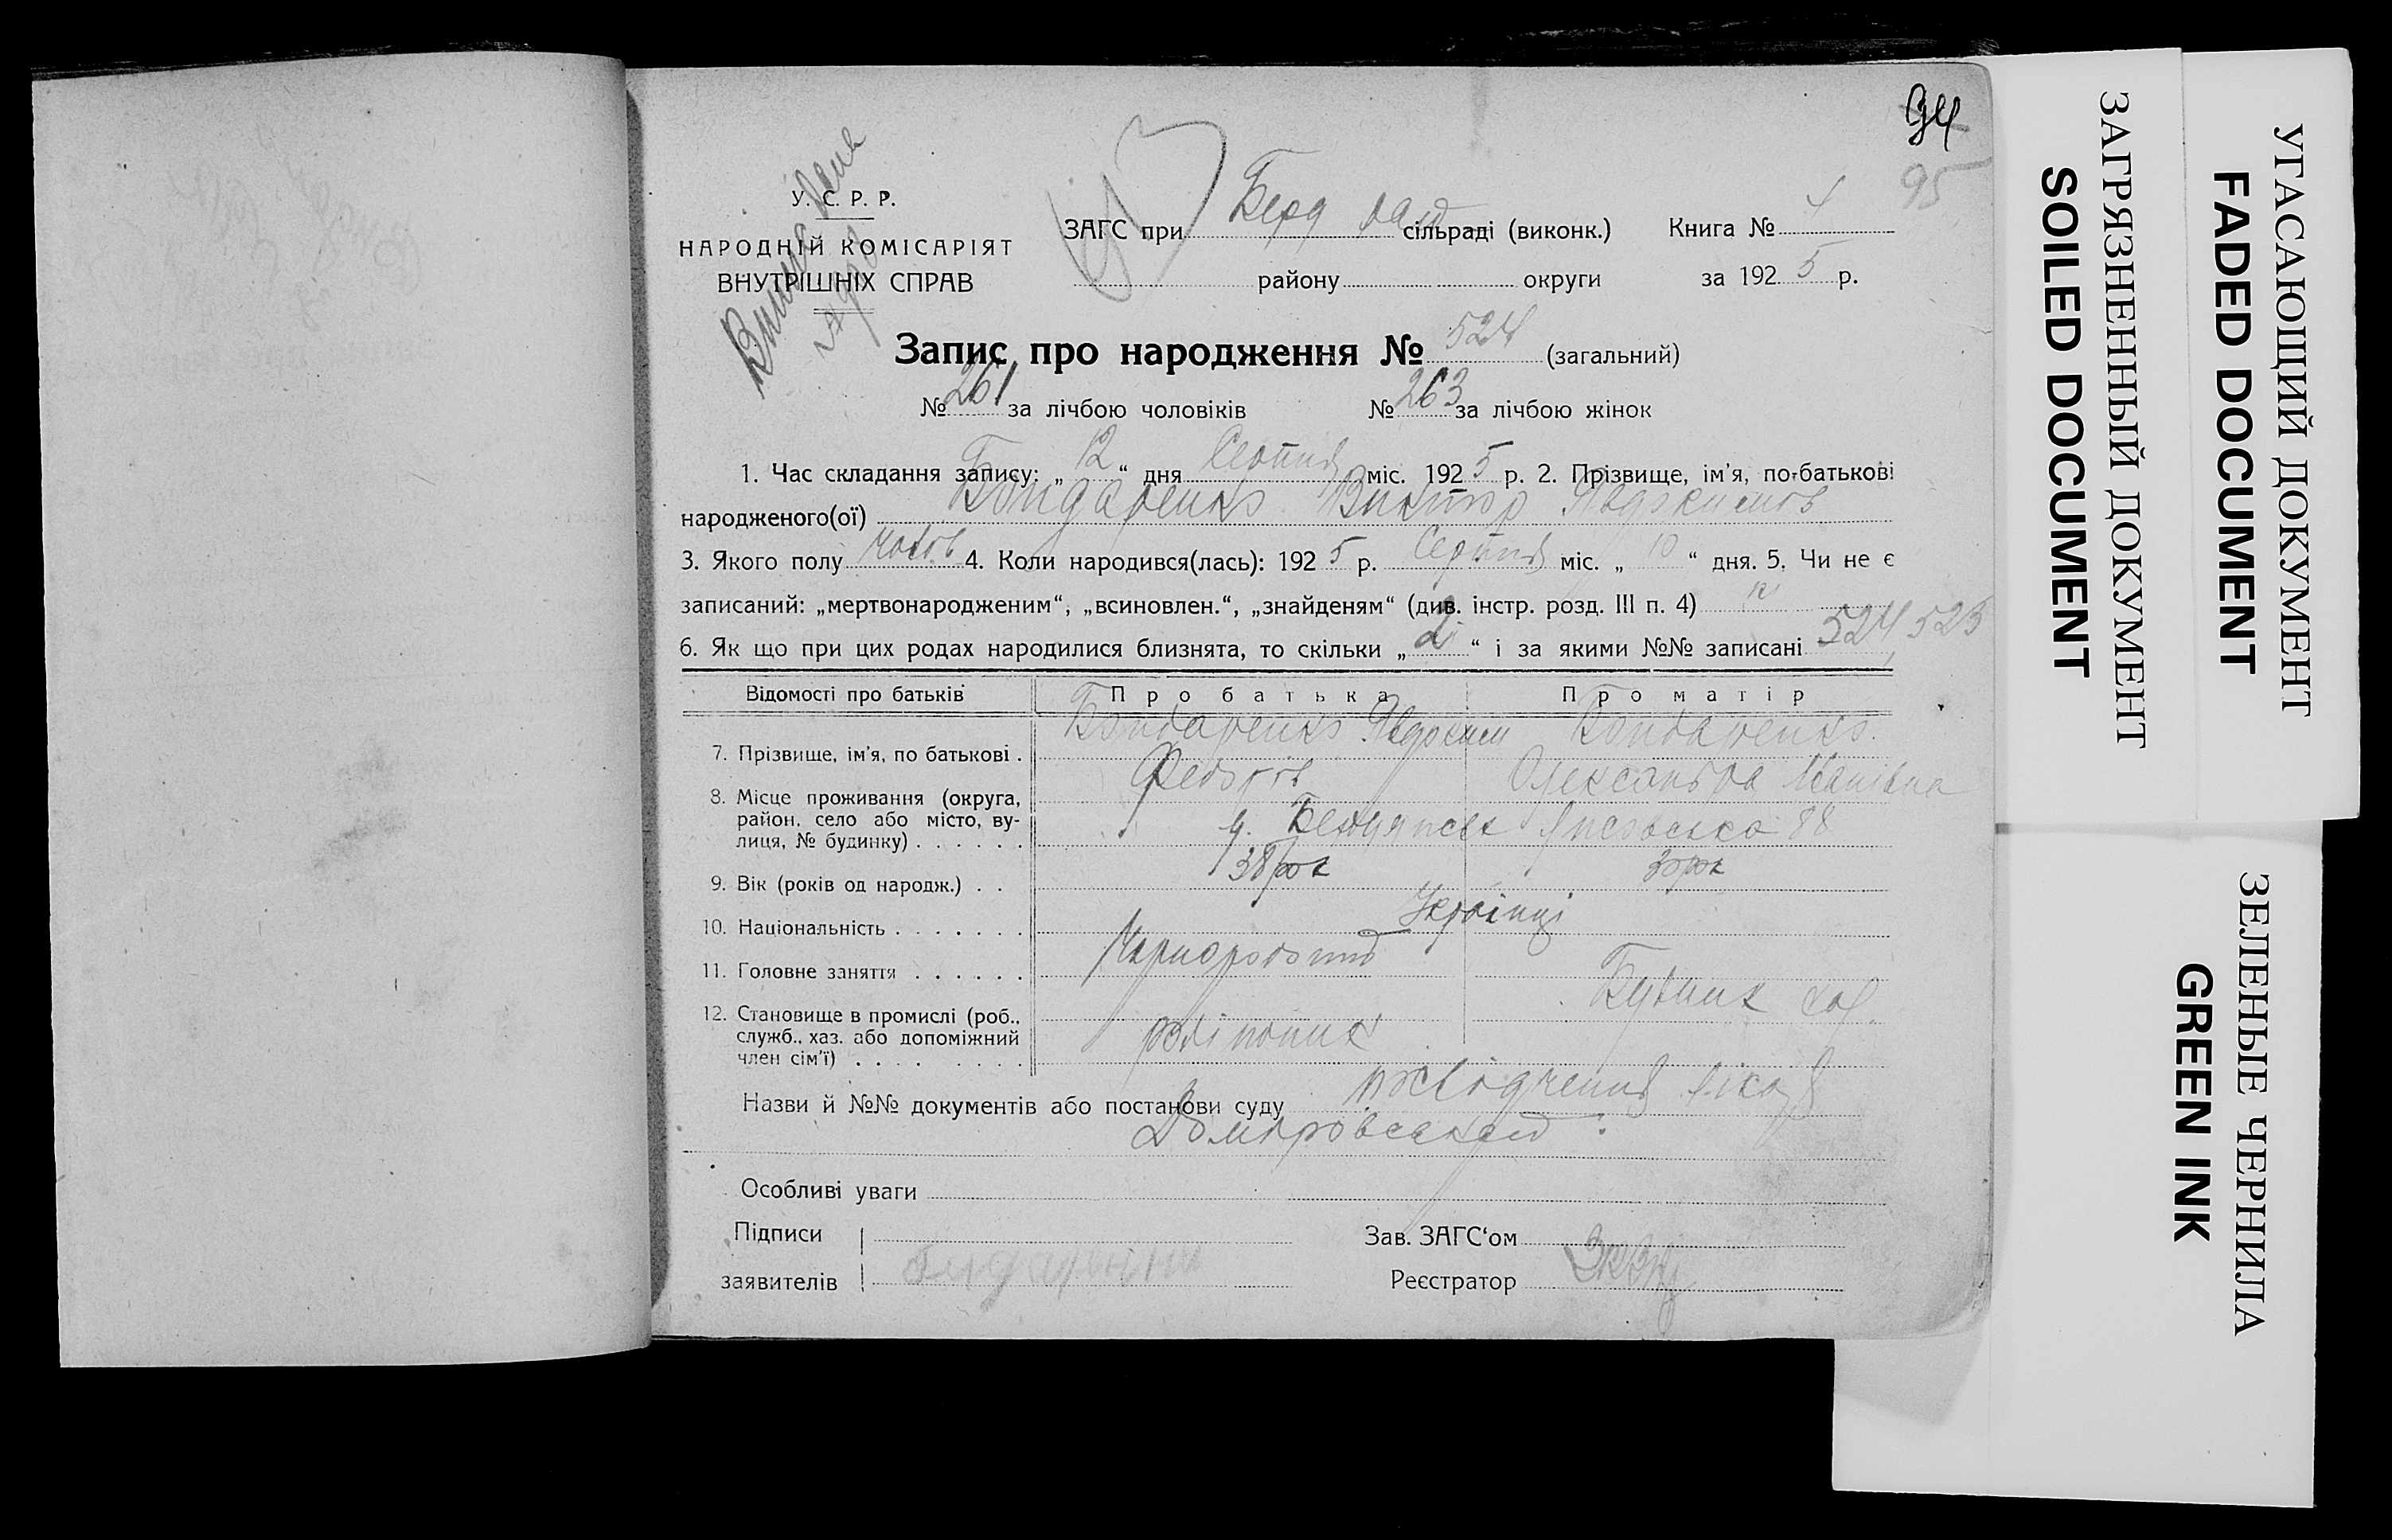 94
95
У. С. Р. Р.
НАРОДНІЙ КОМІСАРІЯТ
ВНУТРІШНІХ СПРАВ
ЗАГС при Берд сільраді (виконк.) Книга № 4
району округи за 192 5 р.
Запис про народження № 524 (загальний)
№ 261 за лічбою чоловіків № 263 за лічбою жінок
1. Час складання запису: „ 12 “ дня Серпня міс. 192 5 р. 2. Прізвище, ім'я, по-батькові
народженого(ої) Бондаренко Виктор
3. Якого полу 4. Коли народився(лась): 192 5 р. Серпня міс. „ 10 “ дня. 5. Чи не є
записаний: „мертвонародженим“, „всиновлен.“, „знайденям“ (див. інстр. розд. III п. 4) ні
6. Як що при цих родах народилися близнята, то скільки „ 2 “ і за якими №№ записані 524, 523
Відомості про батьків Про батька Про матір
7. Прізвище, ім'я, по батькові . Бондаренко Явдоким Бондаренко
Федоров Олександра Іванівна
8. Місце проживання (округа,
район, село або місто, ву-
лиця, № будинку) . . . . . . Бердянськ 88
9. Вік (років од народж.) . . 38 рок 30 рок
10. Національність . . . . . . . Українці
11. Головне заняття . . . . . . Чорноробочий
12. Становище в промислі (роб.,
служб., хаз. або допоміжний
член сім'ї) . . . . . . . . робітник
Назви й №№ документів або постанови суду посвідчення лікаря
Домбровського
Особливі уваги
Підписи
заявителів
Зав. ЗАГС‘ом
Реєстратор
ЗАГРЯЗНЕННЫЙ ДОКУМЕНТ
SOILED DOCUMENT
УГАСАЮЩИЙ ДОКУМЕНТ
FADED DOCUMENT
ЗЕЛЕНЫЕ ЧЕРНИЛА
GREEN INK